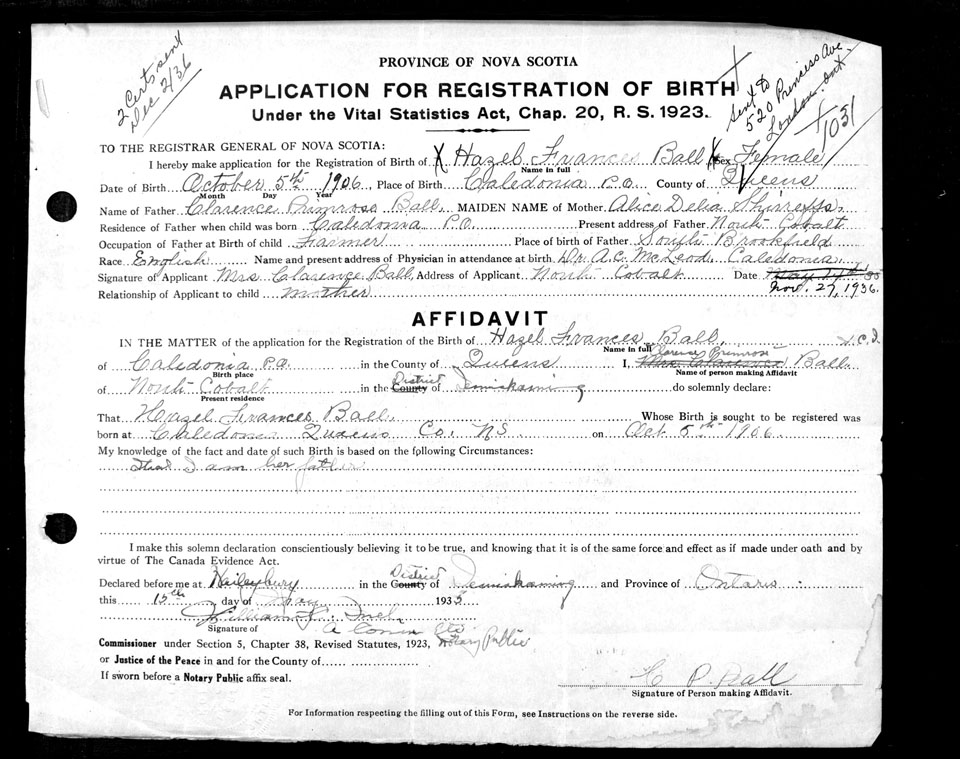 2 Certs sent
Dec 2/36
PROVINCE OF NOVA SCOTIA
APPLICATION FOR REGISTRATION OF BIRTH
Under the Vital Statistics Act, Chap. 20, R. S. 1923.
Sent to
520 Princess Ave.
London. Ont
1031
TO THE REGISTRAR GENERAL OF NOVA SCOTIA:
I hereby make application for the Registration of Birth of X Hazel Frances Ball X Sex Female
Name in full
Date of Birth October 5th 1906 Place of Birth Caledonia P.O. County of Queens
Month Day Year
Name of Father Clarence Primrose Ball. MAIDEN NAME of Mother Alice Delia Shirreffs.
Residence of Father when child was born Caledonia P.O. Present address of Father North Cobalt
Occupation of Father at Birth of child Farmer Place of birth of Father South Brookfield
Race English Name and present address of Physician in attendance at birth Dr. A.C. McLeod Caledonia
Signature of Applicant Mrs Clarence Ball Address of Applicant North Cobalt Date
Nov. 27, 1936.
Relationship of Applicant to child mother
AFFIDAVIT
IN THE MATTER of the application for the Registration of the Birth of Hazel Frances Ball
Name in full
Clarence Primrose
of Caledonia P.O. in the County of Queens I, Mrs Clarence Ball
Birth place Name of person making Affidavit
of North Cobalt in the County District of Temiskaming do solemnly declare:
Present residence
That Hazel Frances Ball. Whose Birth is sought to be registered was
born at Caledonia Queens Co. N.S. on Oct 5th 1906.
My knowledge of the fact and date of such Birth is based on the following Circumstances:
that I am her father
I make this solemn declaration conscientiously believing it to be true, and knowing that it is of the same force and effect as if made under oath and by
virtue of The Canada Evidence Act.
Declared before me at Haileybury in the County District of Temiskaming and Province of Ontario
this 15th day of May 1935
William
Signature of A Comm etc
Commissioner under Section 5, Chapter 38, Revised Statutes, 1923, Notary Public
or Justice of the Peace in and for the County of
If sworn before a Notary Public affix seal.
C P. Ball
Signature of Person making Affidavit.
For Information respecting the filling out of this Form, see Instructions on the reverse side.